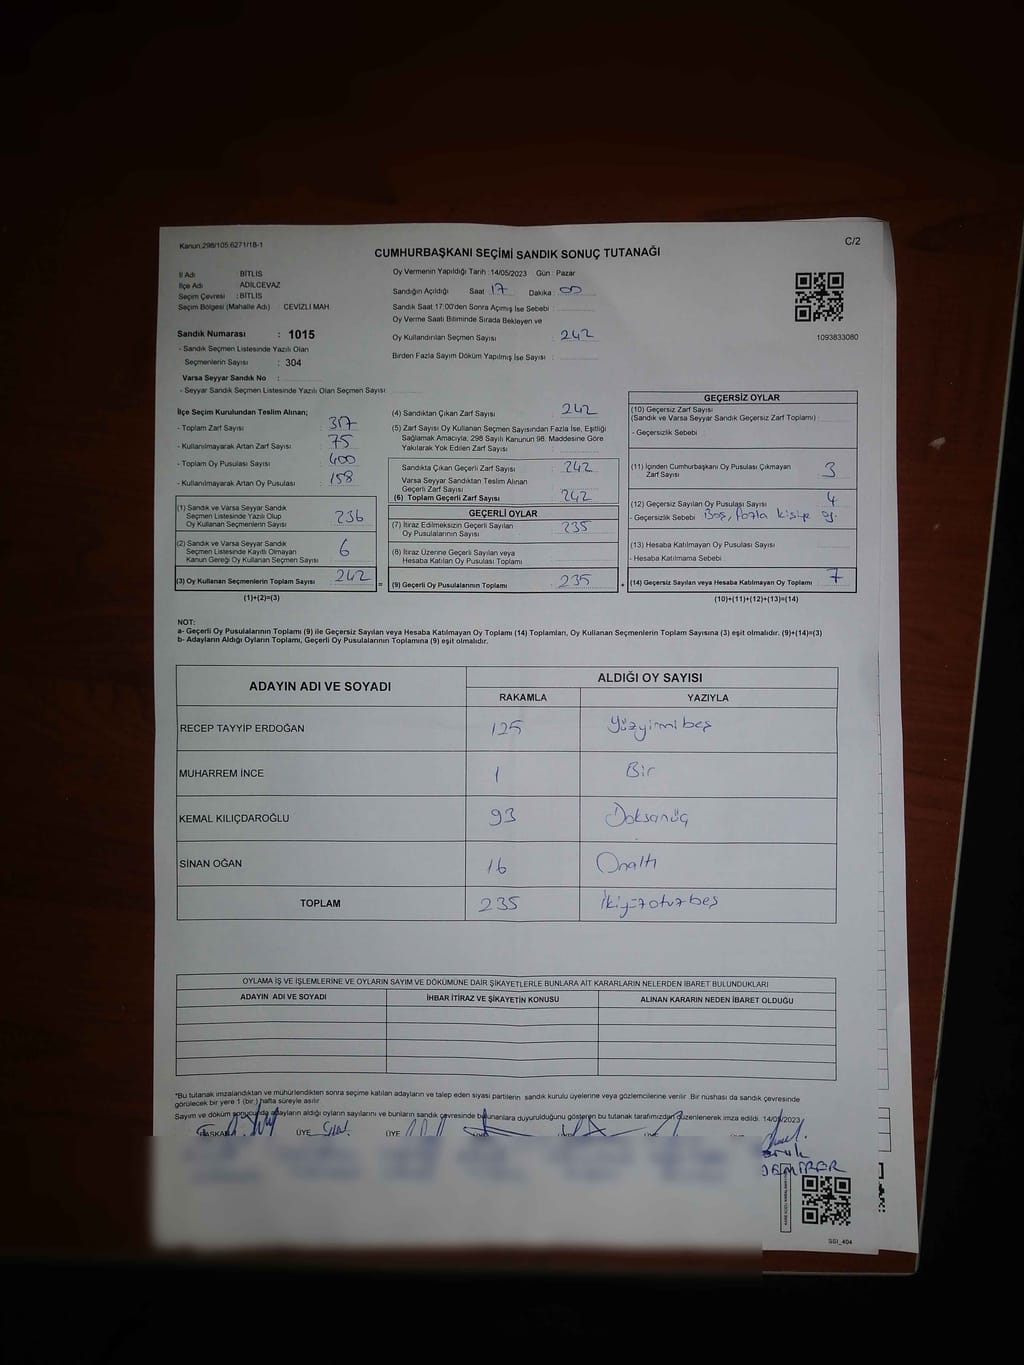 Kanun;298/105;6271/18-1
C/2
CUMHURBAŞKANI SEÇİMİ SANDIK SONUÇ TUTANAĞI
İl Adı BİTLİS
İlçe Adı ADİLCEVAZ
Seçim Çevresi :BİTLİS
Seçim Bölgesi (Mahalle Adı) CEVİZLİ MAH.
Sandık Numarası : 1015
- Sandık Seçmen Listesinde Yazılı Olan
Seçmenlerin Sayısı : 304
Varsa Seyyar Sandık No :
- Seyyar Sandık Seçmen Listesinde Yazılı Olan Seçmen Sayısı:
Oy Vermenin Yapıldığı Tarih :14/05/2023 Gün : Pazar
Sandığın Açıldığı Saat 17 Dakika : 00
Sandık Saat 17:00'den Sonra Açımış İse Sebebi :
Oy Verme Saati Bitiminde Sırada Bekleyen ve
Oy Kullandırılan Seçmen Sayısı : 242
Birden Fazla Sayım Döküm Yapılmış İse Sayısı :
1093833080
İlçe Seçim Kurulundan Teslim Alınan;
- Toplam Zarf Sayısı : 317
- Kullanılmayarak Artan Zarf Sayısı : 75
- Toplam Oy Pusulası Sayısı : 400
- Kullanılmayarak Artan Oy Pusulası : 158
(1) Sandık ve Varsa Seyyar Sandık
Seçmen Listesinde Yazılı Olup
Oy Kullanan Seçmenlerin Sayısı 236
(2) Sandık ve Varsa Seyyar Sandık
Seçmen Listesinde Kayıtlı Olmayan
Kanun Gereği Oy Kullanan Seçmen Sayısı 6
(3) Oy Kullanan Seçmenlerin Toplam Sayısı 242
(1)+(2)=(3)
(4) Sandıktan Çıkan Zarf Sayısı : 242
(5) Zarf Sayısı Oy Kullanan Seçmen Sayısından Fazla İse, Eşitliği
Sağlamak Amacıyla, 298 Sayılı Kanunun 98. Maddesine Göre
Yakılarak Yok Edilen Zarf Sayısı :
Sandıkta Çıkan Geçerli Zarf Sayısı : 242
Varsa Seyyar Sandıktan Teslim Alınan
Geçerli Zarf Sayısı
(6) Toplam Geçerli Zarf Sayısı : 242
GEÇERLİ OYLAR
(7) İtiraz Edilmeksizin Geçerli Sayılan
Oy Pusulalarının Sayısı : 235
(8) İtiraz Üzerine Geçerli Sayılan veya
Hesaba Katılan Oy Pusulası Toplamı :
= (9) Geçerli Oy Pusulalarının Toplamı : 235 +
GEÇERSİZ OYLAR
(10) Geçersiz Zarf Sayısı
(Sandık ve Varsa Seyyar Sandık Geçersiz Zarf Toplamı) :
- Geçersizlik Sebebi :
(11) İçinden Cumhurbaşkanı Oy Pusulası Çıkmayan
Zarf Sayısı 3
(12) Geçersiz Sayılan Oy Pusulası Sayısı : 4
- Geçersizlik Sebebi Boş, fazla kişiye oy.
(13) Hesaba Katılmayan Oy Pusulası Sayısı
- Hesaba Katılmama Sebebi
(14) Geçersiz Sayılan veya Hesaba Katılmayan Oy Toplamı : 7
(10)+(11)+(12)+(13)=(14)
NOT:
a- Geçerli Oy Pusulalarının Toplamı (9) ile Geçersiz Sayılan veya Hesaba Katılmayan Oy Toplamı (14) Toplamları, Oy Kullanan Seçmenlerin Toplam Sayısına (3) eşit olmalıdır. (9)+(14)=(3)
b- Adayların Aldığı Oyların Toplamı, Geçerli Oy Pusulalarının Toplamına (9) eşit olmalıdır.
ADAYIN ADI VE SOYADI ALDIĞI OY SAYISI
RAKAMLA YAZIYLA
RECEP TAYYİP ERDOĞAN 125 Yüzyirmibeş
MUHARREM İNCE 1 Bir
KEMAL KILIÇDAROĞLU 93 Doksanüç
SİNAN OĞAN 16 Onaltı
TOPLAM 235 İkiyüzotuzbeş
OYLAMA İŞ VE İŞLEMLERİNE VE OYLARIN SAYIM VE DÖKÜMÜNE DAİR ŞİKAYETLERLE BUNLARA AİT KARARLARIN NELERDEN İBARET BULUNDUKLARI
ADAYIN ADI VE SOYADI İHBAR İTİRAZ VE ŞİKAYETİN KONUSU ALINAN KARARIN NEDEN İBARET OLDUĞU
*Bu tutanak imzalandıktan ve mühürlendikten sonra seçime katılan adayların ve talep eden siyasi partilerin sandık kurulu üyelerine veya gözlemcilerine verilir. Bir nüshası da sandık çevresinde
görülecek bir yere 1 (bir ) hafta süreyle asılır.
Sayım ve döküm sonucunda adayların aldığı oyların sayılarını ve bunların sandık çevresinde bulunanlara duyurulduğunu gösteren bu tutanak tarafımızdan düzenlenerek imza edildi. 14/05/2023
BAŞKAN ÜYE ÜYE
DEMİRER
SSİ_404